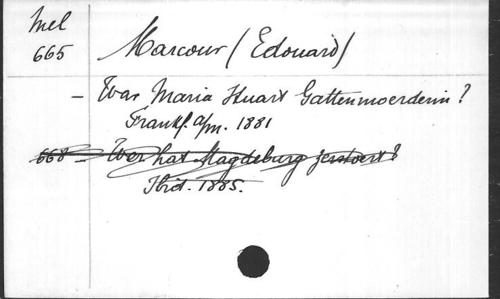 Mel
665
Marcour (Edouard)
- War Maria Stuart Gattenmoerderin?
Frankf. a/m. 1881
668 - Wer hat Magdeburg zerstoert?
Ibid. 1885.